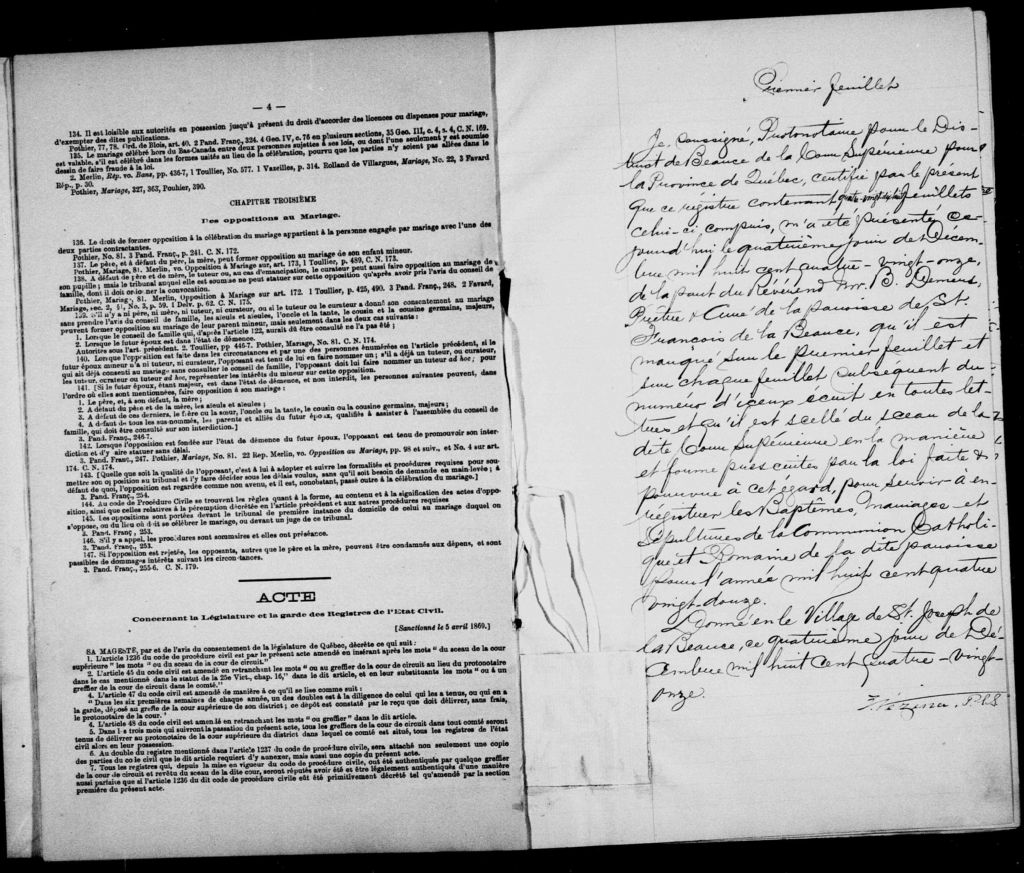 — 4 —
134. Il est loisible aux autorités en possession jusqu'à présent du droit d'accorder des licences ou dispenses pour mariage,
d'exempter des dites publications.
Pothier, 77, 78. Ord. de Blois, art. 40. 2 Pand. Franç., 324. 4 Geo. IV, c. 75 en plusieurs sections, 35 Geo. III, c. 4, s. 4, C. N. 169.
135. Le mariage célébré hors du Bas-Canada entre deux personnes sujettes à ses lois, ou dont l'une seulement y est soumise
est valable, s'il est célébré dans les formes usités au lieu de la célébration, pourvu que les parties n'y soient pas allées dans le
dessin de faire fraude à la loi.
2. Merlin, Rép. vo. Bans, pp. 436-7, 1 Toullier, No. 577. 1 Vazeilles, p. 314. Rolland de Villargues, Mariage, No. 22, 3 Favard
Rép., p. 30.
Pothier, Mariage, 327, 363, Pouhier, 390.
CHAPITRE TROISIÈME
Des oppositions au Mariage.
136. Le droit de former opposition à la célébration du mariage appartient à la personne engagée par mariage avec l'une des
deux parties contractantes.
Pothier, No. 81. 3 Pand. Franç., p. 241. C. N. 172.
137. Le père, et à défaut du père, la mère, peut former opposition au mariage de son enfant mineur.
Pothier, Mariage, 81. Merlin, vo. Opposition à Mariage sur art. 173, 1 Toullier, p. 489, C. N. 173.
138. A défaut de père et de mère, le tuteur, ou, au cas d'émancipation, le curateur peut aussi faire opposition au mariage de
son pupille; mais le tribunal auquel elle est soumise ne peut statuer sur cette opposition, qu'après avoir pris l'avis du conseil de
famille, dont il doit ordonner la convocation.
Pothier, Mariage, 81. Merlin, Opposition à Mariage sur art. 172. 1 Toullier, p. 425, 490. 3 Pand. Franç., 248. 2 Favard,
Mariage, sec. 2, §1, No. 3, p. 59. 1 Delv. p. 62. C. N. 175.
139. S'il n'y a ni père, ni mère, ni tuteur, ni curateur, ou si le tuteur ou le curateur a donné son consentement au mariage
sans prendre l'avis du conseil de famille, les aïeuls et aïeules, l'oncle et la tante, le cousin et la cousine germains, majeurs,
peuvent former opposition au mariage de leur parent mineur, mais seulement dans les deux cas suivants:
1. Lorsque le conseil de famille qui, d'après l'article 122, aurait dû être consulté ne l'a pas été;
2. Lorsque le futur époux est dans l'état de démence.
Autorités sous l'art. précédent. 2. Toullier, pp 446-7. Pothier, Mariage, No. 81. C. N. 174.
140. Lorsque l'opposition est faite dans les circonstances et par une des personnes énumérées en l'article précédent, si le
futur époux mineur n'a ni tuteur, ni curateur, l'opposant est tenu de lui en faire nommer un; s'il a déjà un tuteur, ou curateur,
qui ait déjà consenti au mariage sans consulter le conseil de famille, l'opposant doit lui faire nommer un tuteur ad hoc; pour
les tuteur, curateur ou tuteur ad hoc, représenter les intérêts du mineur sur cette opposition.
141. [Si le futur époux, étant majeur, est dans l'état de démence, et non interdit, les personnes suivantes peuvent, dans
l'ordre où elles sont mentionnées, faire opposition à son mariage:
1. Le père, et, à son défaut, la mère;
2. A défaut du père et de la mère, les aïeuls et aïeules;
3. A défaut de ces derniers, le frère ou la sœur, l'oncle ou la tante, le cousin ou la cousine germains, majeurs;
4. A défaut de tous les sus-nommés, les parents et alliés du futur époux, qualifiés à assister à l'assemblée du conseil de
famille, qui doit être consulté sur son interdiction.]
3. Pand. Franç., 246-7.
142. Lorsque l'opposition est fondée sur l'état de démence du futur époux, l'opposant est tenu de promouvoir son inter-
diction et d'y aire statuer sans délai.
3. Pand. Franç., 247. Pothier, Mariage, No. 81. 22 Rep. Merlin, vo. Opposition au Mariage, pp. 98 et suiv., et No. 4 sur art.
174. C. N. 174.
143. [Quelle que soit la qualité de l'opposant, c'est à lui à adopter et suivre les formalités et procédures requises pour sou-
mettre son opposition au tribunal et l'y faire décider sous les délais voulus, sans qu'il soit besoin de demande en main-levée; à
défaut de quoi, l'opposition est regardée comme non avenu, et il est, nonobstant, passé outre à la célébration du mariage.]
3. Pand. Franç., 254.
144. Au code de Procédure Civile se trouvent les règles quant à la forme, au contenu et à la signification des actes d'oppo-
sition, ainsi que celles relatives à la péremption décrétée en l'article précédent et aux autres procédures requises
145. Les oppositions sont portées devant le tribunal de première instance du domicile de celui au mariage duquel on
s'oppose, ou du lieu où doit se célébrer le mariage, ou devant un juge de ce tribunal.
3. Pand. Franç, 253.
146. S'il y a appel, les procédures sont sommaires et elles ont préséance.
3. Pand. Franç., 253.
147. Si l'opposition est rejetée, les opposants, autres que le père et la mère, peuvent être condamnés aux dépens, et sont
passibles de dommages intérêts suivant les circonstances.
3. Pand. Franç., 255-6. C. N. 179.
ACTE
Concernant la Législature et la garde des Registres de l'Etat Civil.
[Sanctionné le 5 avril 1869.]
SA MAGESTÉ, par et de l'avis du consentement de la législature de Québec, décrète ce qui suit:
1. L'article 1236 du code de procédure civil est par le présent acte amendé en insérant après les mots "du sceau de la cour
supérieure" les mots "ou du sceau de la cour de circuit."
2. L'article 45 du code civil est amendé en retranchant les mots "ou au greffier de la cour de circuit au lieu du protonotaire
dans le cas mentionné dans le statut de la 25e Vict., chap. 16," dans le dit article, et en leur substituants les mots "ou à un
greffier de la cour de circuit dans le comté."
4. L'article 47 du code civil est amendé de manière à ce qu'il se lise comme suit:
"Dans les six premières semaines de chaque année, un des doubles est à la diligence de celui qui les a tenus, ou qui en a
la garde, déposé au greffe de la cour supérieure de son district; ce dépôt est constaté par le reçu que doit délivrer, sans frais,
le protonotaire de la cour."
4. L'article 48 du code civil est amendé en retranchant les mots "ou greffier" dans le dit article.
5. Dans les trois mois qui suivront la passation du présent acte, tous les greffiers de la cour de circuit dans tout comté seront
tenus de délivrer au protonotaire de la cour supérieure du district dans lequel ce comté est situé, tous les registres de l'état
civil alors en leur possession.
6. Au double du registre mentionné dans l'article 1237 du code de procédure civile, sera attaché non seulement une copie
des parties du code civil que le dit article requiert d'y annexer, mais aussi une copie du présent acte.
7. Tous les registres qui, depuis la mise en vigueur du code de procédure civile, ont été authentiqués par quelque greffier
de la cour de circuit et revêtu du sceau de la dite cour, seront réputés avoir été et être légalement authentiqués d'une manière
aussi parfaite que si l'article 1236 du dit code de procédure civile eût été primitivement décrété tel qu'amendé par la section
première du présent acte.
Premier feuillet
Je, soussigné, Protonotaire pour le Dis-
trict de Beauce de la Cour Supérieure pour
la Province de Québec, certifie par le présent
que ce régistre contenant feuillets
celui-ci, compris, m'a été présenté ce-
jourd'hui le quatrième jour de Décem-
bre mil huit cent quatre-vingt-onze,
de la part du Révérend Mr. B. Demers,
Prêtre & Curé de la paroisse de St.
François de la Beauce, qu'il est
marqué sur le premier feuillet et
sur chaque feuillet subséquent du
numéro d'iceux écrit en toutes let-
tres et qu'il est scellé du sceau de la
dite Cour Supérieure en la manière
et forme prescrites par la loi faite &
pourvue à cet égard, pour servir à en-
régistrer les Baptêmes, mariages et
Sépultures de la Communion Catholi-
que et Romaine de la dite paroisse
pour l'année mil huit cent quatre
vingt-douze.
Donné en le Village de St. Joseph de
la Beauce, ce quatrième jour de Dé-
cembre mil huit cent quatre-vingt-
onze.
Vézina, P.C.S